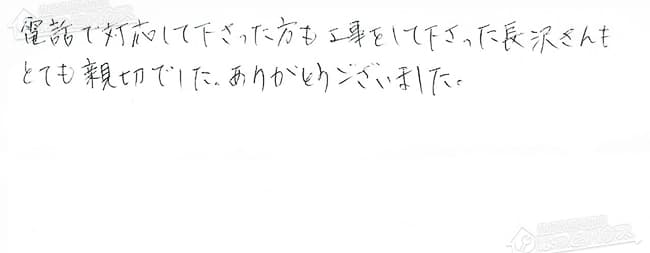 電話で対応して下さった方も工事をして下さった長沢さんも
とても親切でした。ありがとうございました。